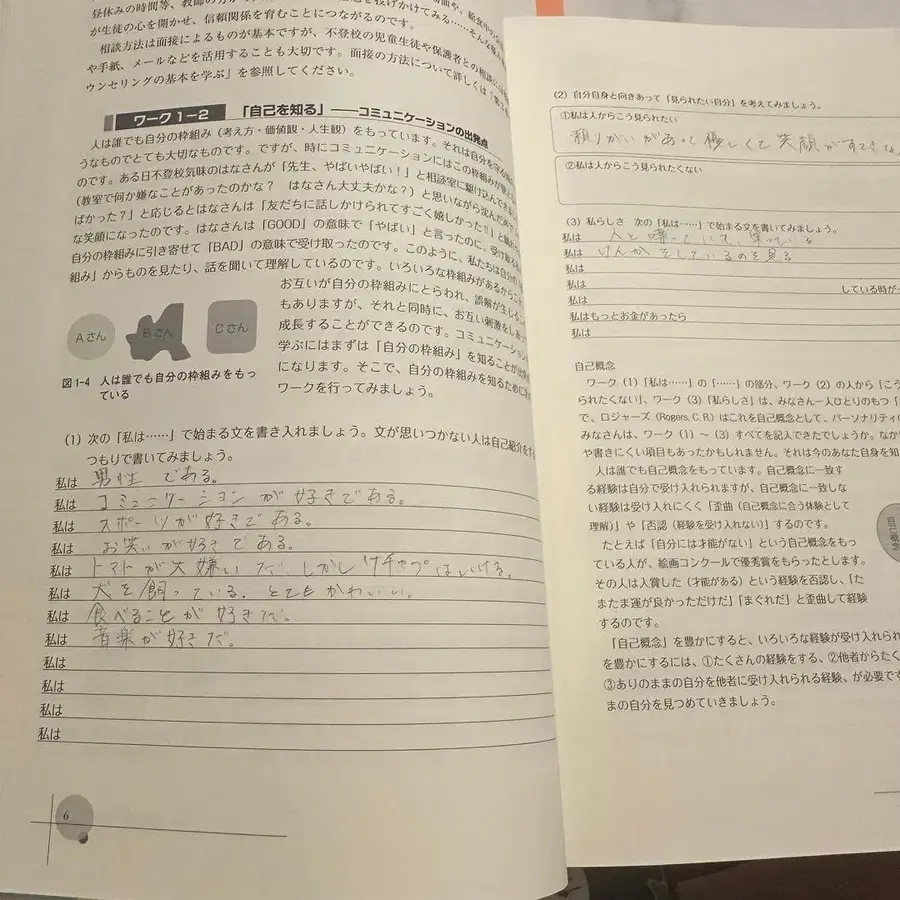 昼休みの時間等、教師の方か
が生徒の心を開かせ、信頼関係を育むことにつながるのです。
相談方法は面接によるものが基本ですが、不登校の児童生徒や保護者との相談には
や手紙、メールなどを活用することも大切です。面接の方法について詳しくは「第
ウンセリングの基本を学ぶ」を参照してください。
ワーク1-2 「自己を知る」――コミュニケーションの出発点
人は誰でも自分の枠組み（考え方・価値観・人生観）をもっています。それは自分を守る
うなものでとても大切なものです。ですが、時にコミュニケーションにはこの枠組みが
のです。ある日不登校気味のはなさんが「先生、やばいやばい！」と相談室に駆け込んで
（教室で何か嫌なことがあったのかな？ はなさん大丈夫かな？）と思いながら沈んだ
ばかった？」と応じるとはなさんは「友だちに話しかけられてすごく嬉しかった！」と
な笑顔になったのです。はなさんは「GOOD」の意味で「やばい」と言ったのに、受け取る
自分の枠組みに引き寄せて「BAD」の意味で受け取ったのです。このように、私たちは自分の
組み」からものを見たり、話を聞いて理解しているのです。いろいろな枠組みがあるから
お互いが自分の枠組みにとらわれ、誤解が生じる
もありますが、それと同時に、お互い刺激をし
成長することができるのです。コミュニケーション
学ぶにはまずは「自分の枠組み」を知ることが出発
になります。そこで、自分の枠組みを知るために
ワークを行ってみましょう。
Aさん Bさん Cさん
図1-4 人は誰でも自分の枠組みをもっ
ている
(1) 次の「私は……」で始まる文を書き入れましょう。文が思いつかない人は自己紹介をする
つもりで書いてみましょう。
私は 男性 である。
私は コミュニケーションが好きである。
私は スポーツが好きである。
私は お笑いが好きである。
私は トマトが大嫌いだ しかしケチャップはいける。
私は 犬を飼っている. とてもかわいい。
私は 食べることが好きだ。
私は 音楽が好きだ。
私は
私は
私は
私は
6
(2) 自分自身と向きあって「見られたい自分」を考えてみましょう。
①私は人からこう見られたい
頼りがいがあって優しくて笑顔がすてきな
②私は人からこう見られたくない
(3) 私らしさ 次の「私は……」で始まる文を書いてみましょう。
私は 人と喋っていて、
私は けんかをしているのを見る
私は
私は している時が
私は
私はもっとお金があったら
私は
自己概念
ワーク（1）「私は……」の「……」の部分、ワーク（2）の人から「こう
られたくない」、ワーク（3）「私らしさ」は、みなさん一人ひとりのもつ「
で、ロジャーズ（Rogers, C. R.）はこれを自己概念として、パーソナリティの
みなさんは、ワーク（1）～（3）すべてを記入できたでしょうか。なか
や書きにくい項目もあったかもしれません。それは今のあなた自身を知
人は誰でも自己概念をもっています。自己概念に一致す
る経験は自分で受け入れられますが、自己概念に一致しな
い経験は受け入れにくく「歪曲（自己概念に合う体験として
理解）」や「否認（経験を受け入れない）」するのです。
たとえば「自分には才能がない」という自己概念をもっ
ている人が、絵画コンクールで優秀賞をもらったとします。
その人は入賞した（才能がある）という経験を否認し、「た
またま運が良かっただけだ」「まぐれだ」と歪曲して経験
するのです。
「自己概念」を豊かにすると、いろいろな経験が受け入れられ
を豊かにするには、①たくさんの経験をする、②他者からたく
③ありのままの自分を他者に受け入れられる経験、が必要です
まの自分を見つめていきましょう。
自己概念